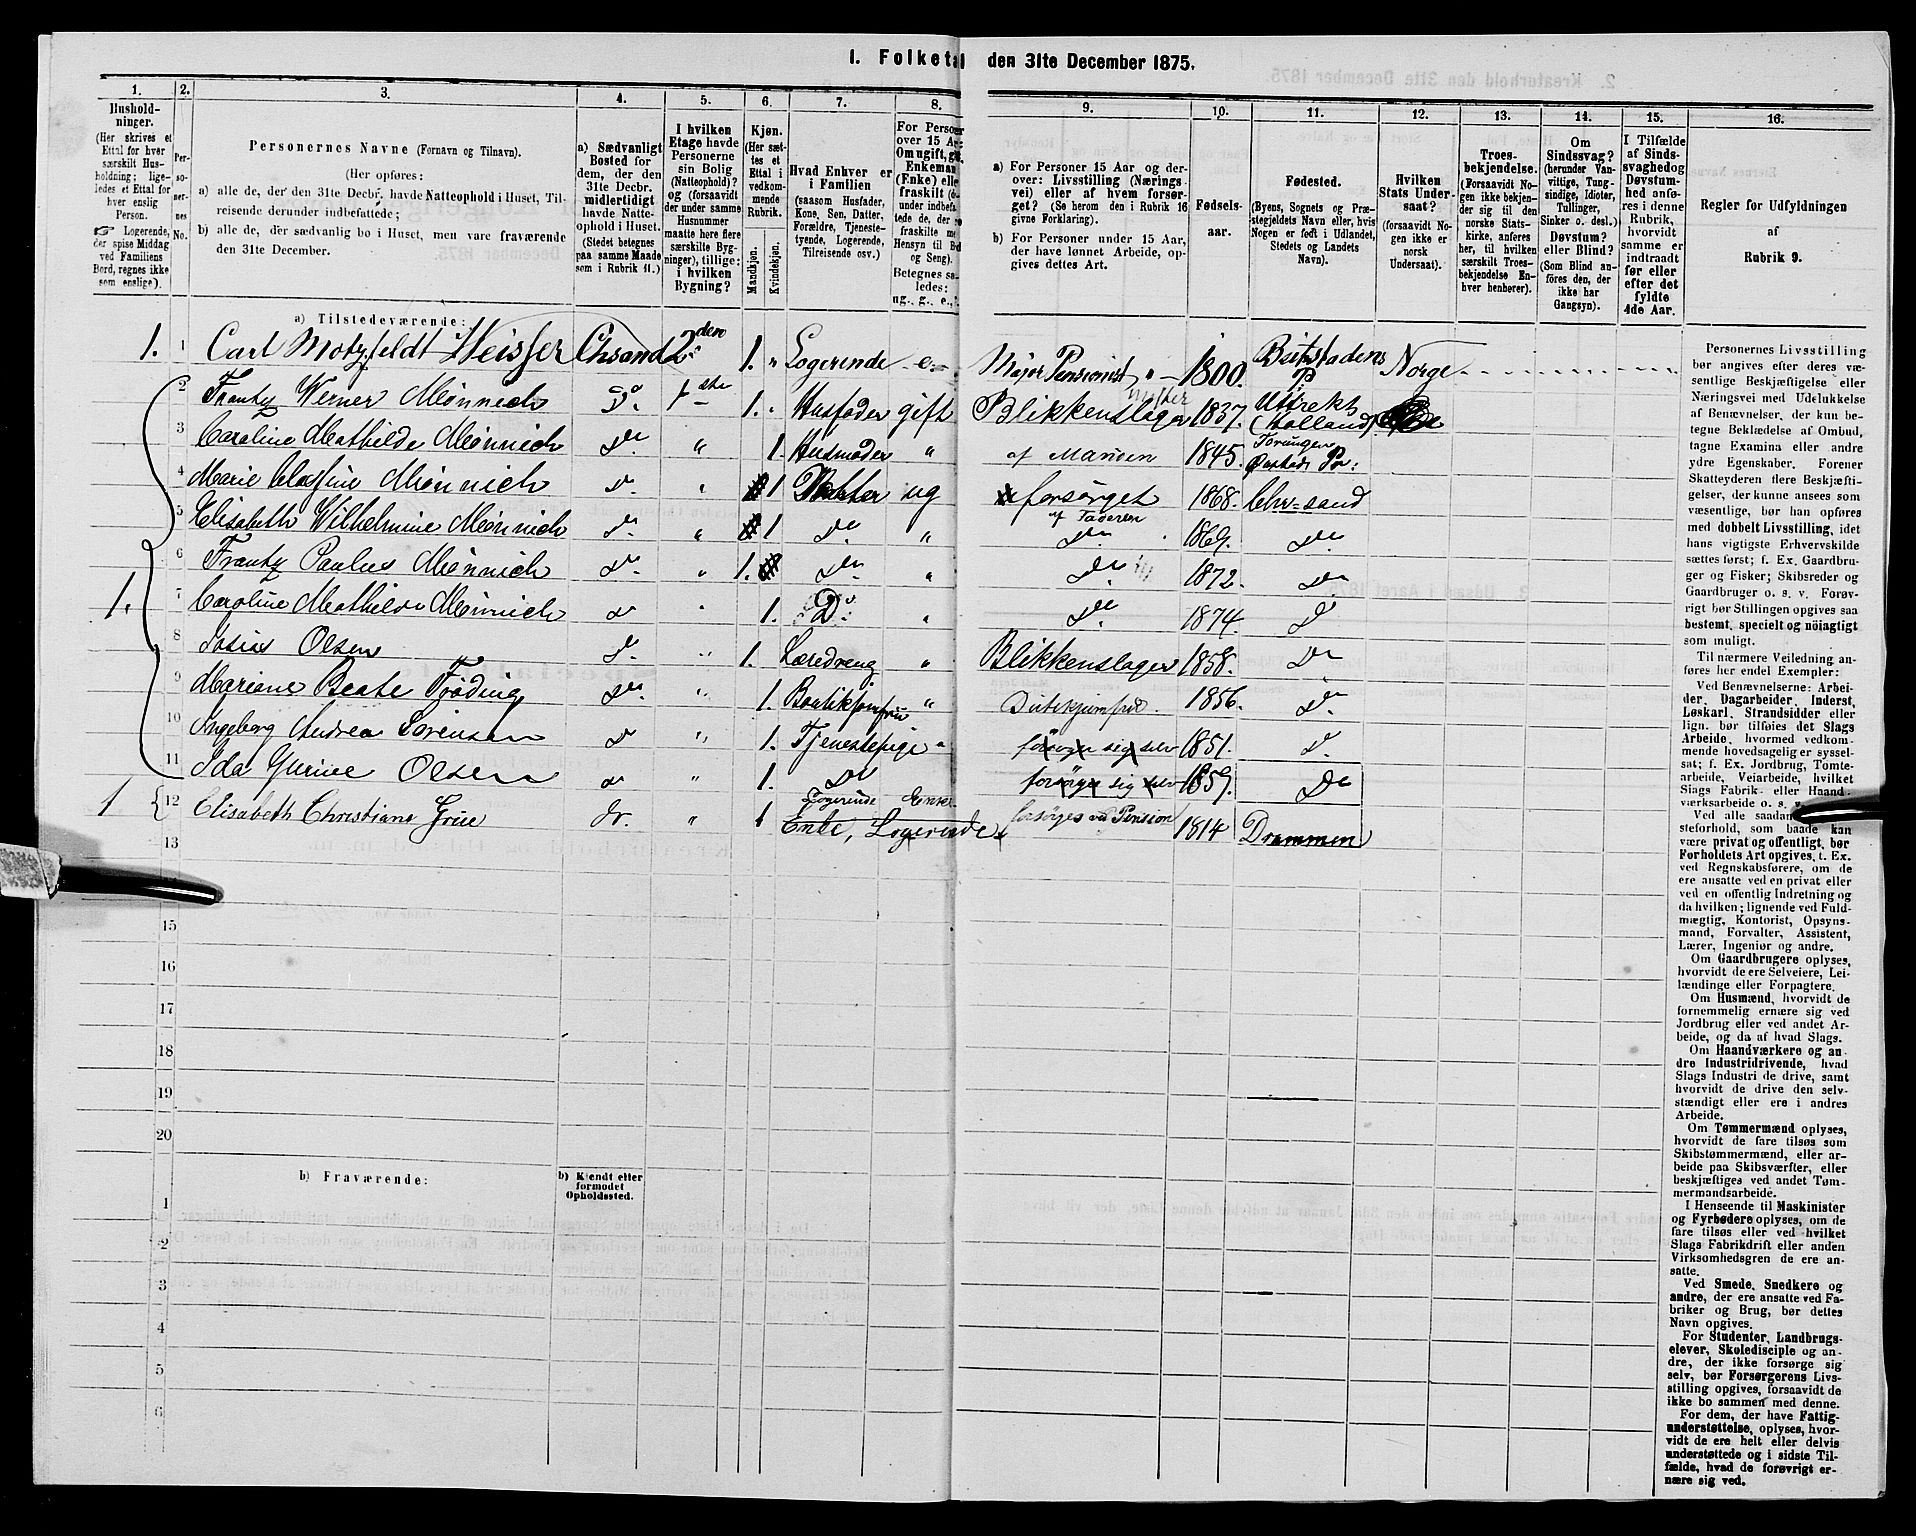 1. Folketal den 31te December 1875.
1. 2. 3. 4. 5. 6. 7. 8. 9. 10. 11. 12. 13. 14. 15. 16.
Hushold-
ninger.
(Her skrives et
Ettal for hver
særskilt Hus-
holdning; lige-
ledes et Ettal for
hver enslig
Person.
☞ Logerende,
der spise Middag
ved Familiens
Bord, regnes ikke
som enslige).
Per-
so-
ner-
nes
No.
Personernes Navne (Fornavn og Tilnavn).
(Her opføres:
a) alle de, der den 31te Decbr. havde Natteophold i Huset, Til-
reisende derunder indbefattede;
b) alle de, der sædvanlig bo i Huset, men vare fraværende
den 31te December.
a) Sædvanligt
Bosted for
dem, der den
31te Decbr.
midlertidigt
havde Natte-
ophold i Huset.
(Stedet betegnes
paa samme Maade
som i Rubrik 11.)
I hvilken
Etage havde
Personerne
sin Bolig
(Natteophold)?
og (forsaavidt
der under samme
Husnummer
maatte høre flere
særskilte Byg-
ninger), tillige:
i hvilken
Bygning?
Kjøn.
(Her sæt-
tes et
Ettal i
vedkom-
mende
Rubrik.
Mandkjøn.
Kvindekjøn.
Hvad Enhver er
i Familien
(saasom Husfader,
Kone, Søn, Datter,
Forældre, Tjeneste-
tyende, Logerende,
Tilreisende osv.)
For Personer
over 15 Aar:
Om ugift, gift,
Enkemand
(Enke) eller
fraskilt
Betegnes saa-
ledes:
ug., g., e.,
a) For Personer 15 Aar og der-
over: Livsstilling (Nærings-
vei) eller af hvem forsør-
get? (Se herom den i Rubrik 16
givne Forklaring).
b) For Personer under 15 Aar,
der have lønnet Arbeide, op-
gives dettes Art.
Fødsels-
aar.
Fødested.
(Byens, Sognets og Præ-
stegjeldets Navn eller, hvis
Nogen er født i Udlandet,
Stedets og Landets
Navn).
Hvilken
Stats Under-
saat?
(forsaavidt No-
gen ikke er
norsk
Undersaat).
Troes-
bekjendelse.
(Forsaavidt No-
gen ikke bekjen-
der sig til den
norske Stats-
kirke, anføres
her, til hvilken
særskilt Troes-
bekjendelse En-
hver henhører).
Om
Sindssvag?
(herunder Van-
vittige, Tung-
sindige, Idioter,
Tullinger,
Sinker o. desl.)
Døvstum?
eller Blind?
(Som Blind an-
føres den, der
ikke har
Gangsyn).
I Tilfælde
af Sinds-
svaghed og
Døvstum-
hed anfø-
res i denne
Rubrik,
hvorvidt
samme er
indtraadt
før eller
efter det
fyldte
4de Aar.
Regler for Udfyldningen
af
Rubrik 9.
a) Tilstedeværende:
1. 1 Carl Motzfeldt Heisser Chsand 2den 1. " Logerende e. Major Pensionist 1800. P: Norge
2 Frantz Werner Mønnich Do. 1ste 1. " Husfader gift Blikkenslager mester 1837. Uttrekt (Holland)
3 Caroline Mathilde Mønnich Do. " 1. Husmoder " af Manden 1845. Torungen
4 Marie Mønnich Do. " 1 Datter ug forsørget af Faderen 1868. Chr=sand
5 Elisabeth Wilhelmine Mønnich Do. " 1 Do. " Do. 1869. Do
6 Frantz Paulus Mønnich Do. " 1. Do. " Do 1872. Do
1. 7 Caroline Mathilde Mønnich Do " 1. Do. " Do. 1874. Do
8 Josias Olsen Do. " 1. Læredreng " Blikkenslager 1858. Do
9 Mariane Beate Frøding Do. " 1. Boutiksjomfru " Butikjomfru. 1856. Do.
10 Ingeborg Andrea Sørensen Do " 1. Tjenestepige " forsørger sig selv 1851. Do.
11 Ida Gurine Olsen Do " 1. Do forsørger sig selv 1857. Do
1 12 Elisabeth Christiane Grüe do. " 1 Logerende Enke Enke, Logerende forsørges ved Pension 1814 Drammen
13
15
16
17
18
19
20
b) Fraværende:
b) Kjendt eller
formodet
Opholdssted.
1
2
3
4
5
6
Personernes Livsstilling
bør angives efter deres væ-
sentlige Beskjæftigelse eller
Næringsvei med Udelukkelse
af Benævnelser, der kun be-
tegne Beklædelse af Ombud,
tagne Examina eller andre
ydre Egenskaber. Forener
Skatteyderen flere Beskjæfti-
gelser, der kunne ansees som
væsentlige, bør han opføres
med dobbelt Livsstilling, idet
hans vigtigste Erhvervskilde
sættes først; f. Ex. Gaardbru-
ger og Fisker; Skibsreder og
Gaardbruger o. s. v. Forøv-
rigt bør Stillingen opgives saa
bestemt, specielt og nøiagtigt
som muligt.
Til nærmere Veiledning an-
føres her endel Exempler:
Ved Benævnelserne: Arbei-
der, Dagarbeider, Inderst,
Løskarl, Strandsidder eller
lign. bør tilføies det Slags
Arbeide, hvormed vedkom-
mende hovedsagelig er syssel-
sat; f. Ex. Jordbrug, Tomte-
arbeide, Veiarbeide, hvilket
Slags Fabrik- eller Haand-
værksarbeide o. s. v.
Ved alle saadanne
steforhold, som baade kan
være privat og offentligt, bør
Forholdets Art opgives, t. Ex.
ved Regnskabsførere, om de
ere ansatte ved en privat eller
ved en offentlig Indretning og
da hvilken; lignende ved Fuld-
mægtig, Kontorist, Opsyns-
mand, Forvalter, Assistent,
Lærer, Ingeniør og andre.
Om Gaardbrugere oplyses,
hvorvidt de ere Selveiere, Lei-
lændinge eller Forpagtere.
Om Husmænd, hvorvidt de
fornemmelig ernære sig ved
Jordbrug eller ved andet Ar-
beide, og da af hvad Slags.
Om Haandværkere og an-
dre Industridrivende, hvad
Slags Industri de drive, samt
hvorvidt de drive den selv-
stændigt eller ere i andres
Arbeide.
Om Tømmermænd oplyses,
hvorvidt de fare tilsøs som
Skibstømmermænd, eller ar-
beide paa Skibsværfter, eller
beskjæftiges ved andet Tøm-
mermandsarbeide.
I Henseende til Maskinister
og Fyrbødere oplyses, om de
fare tilsøs eller ved hvilket
Slags Fabrikdrift eller anden
Virksomhedsgren de ere an-
satte.
Ved Smede, Snedkere og
andre, der ere ansatte ved Fa-
briker og Brug, bør dettes
Navn opgives.
For Studenter, Landbrugs-
elever, Skoledisciple og an-
dre, der ikke forsørge sig
selv, bør Forsørgerens Livs-
stilling opgives, forsaavidt de
ikke bo sammen med denne.
For dem, der have Fattig-
understøttelse, oplyses, hvor-
vidt de ere helt eller delvis
understøttede og i sidste Til-
fælde, hvad de forøvrigt er-
nære sig ved.